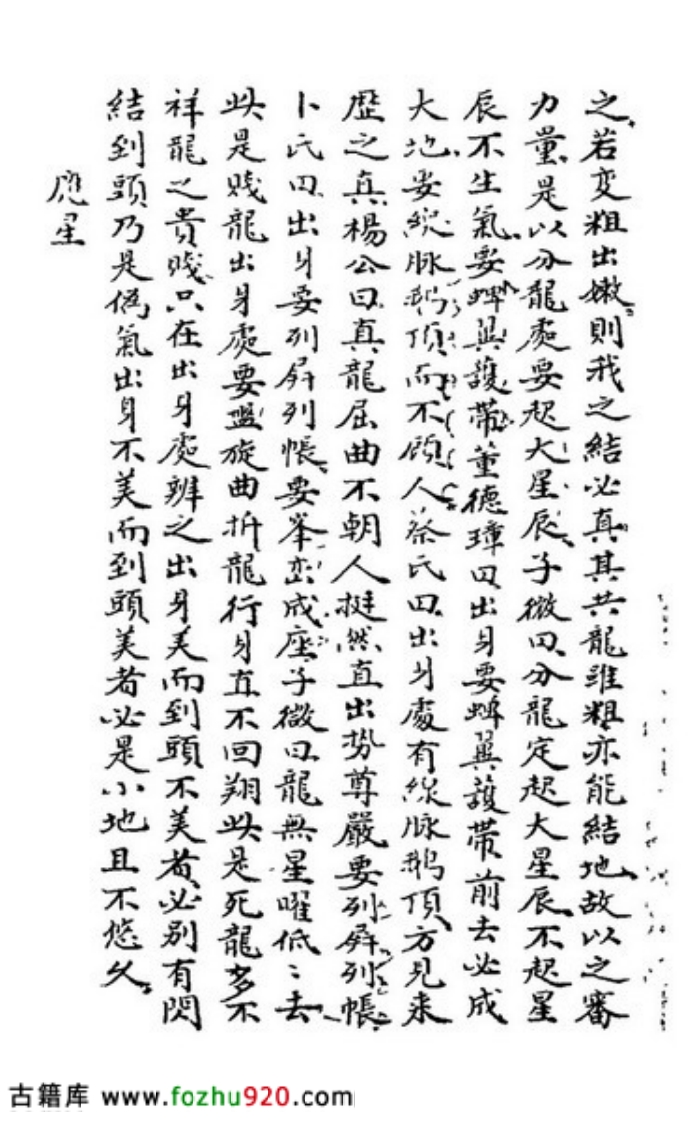 之若变粗出嫩則我之結必真其共龍雖粗亦能結地故以之審
力量是以分龍處要起大星辰子微曰分龍定起大星辰不起星
辰不生氣要蟬翼護帶董德璋曰出身要蟬翼護带前去必成
大地要線脉鵝頂而不顾人蔡氏曰出身處有線脉鵝頂方見来
歴之真楊公曰真龍屈曲不朝人挺然直出势尊嚴要列屏列帳
卜氏曰出身要列屏列帳要峯峦成座子微曰龍無星曜低〻去
此是賤龍出身處要盤旋曲折龍行身直不回翔此是死龍多不
祥龍之貴賤只在出身處辨之出身美而到頭不美者必别有閃
結到頭乃是偽氣出身不美而到頭美者必是小地且不悠久
應星
古籍库 www.fozhu920.com